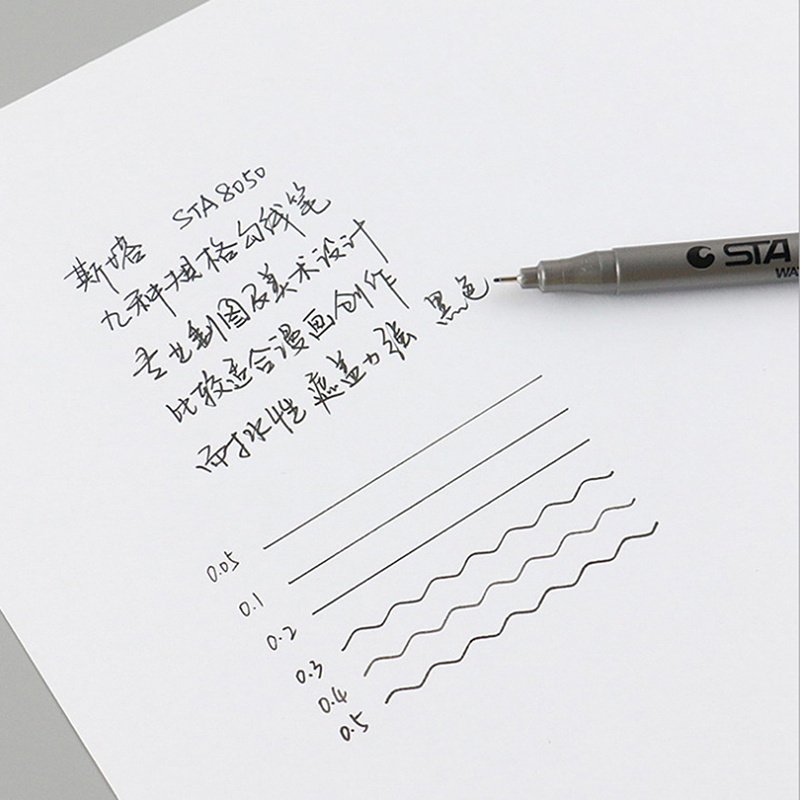 斯塔 STA 8050
九种规格勾线笔
专业制图及美术设计
比较适合漫画创作
耐水性 遮盖力强 黑色
0.05
0.1
0.2
0.3
0.4
0.5
STA
WA